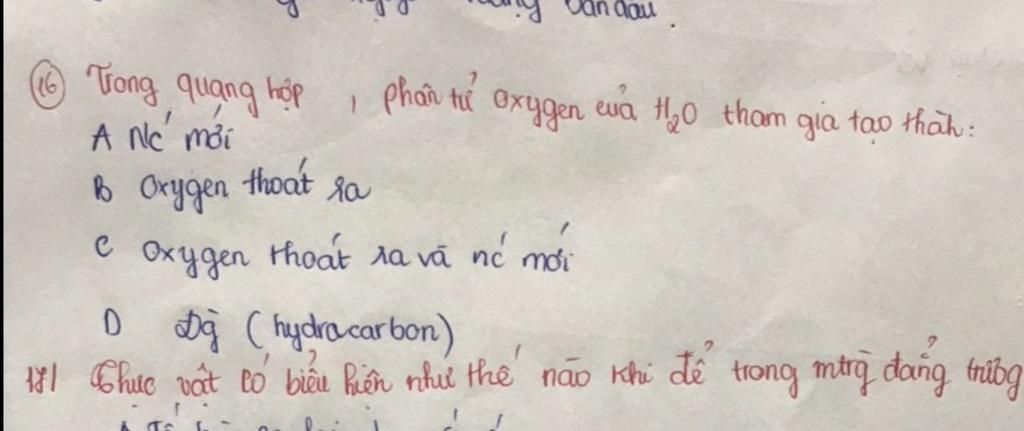 văn đầu.
16 Trong quang hợp, phân tử Oxygen của H₂O tham gia tạo thành:
A Nc' mới
B Oxygen thoát ra
C Oxygen thoát ra và nc' mới
D (hydracarbon)
18/ Thực vật có biểu hiện như thế nào khi để trong mtrg đẳng trương